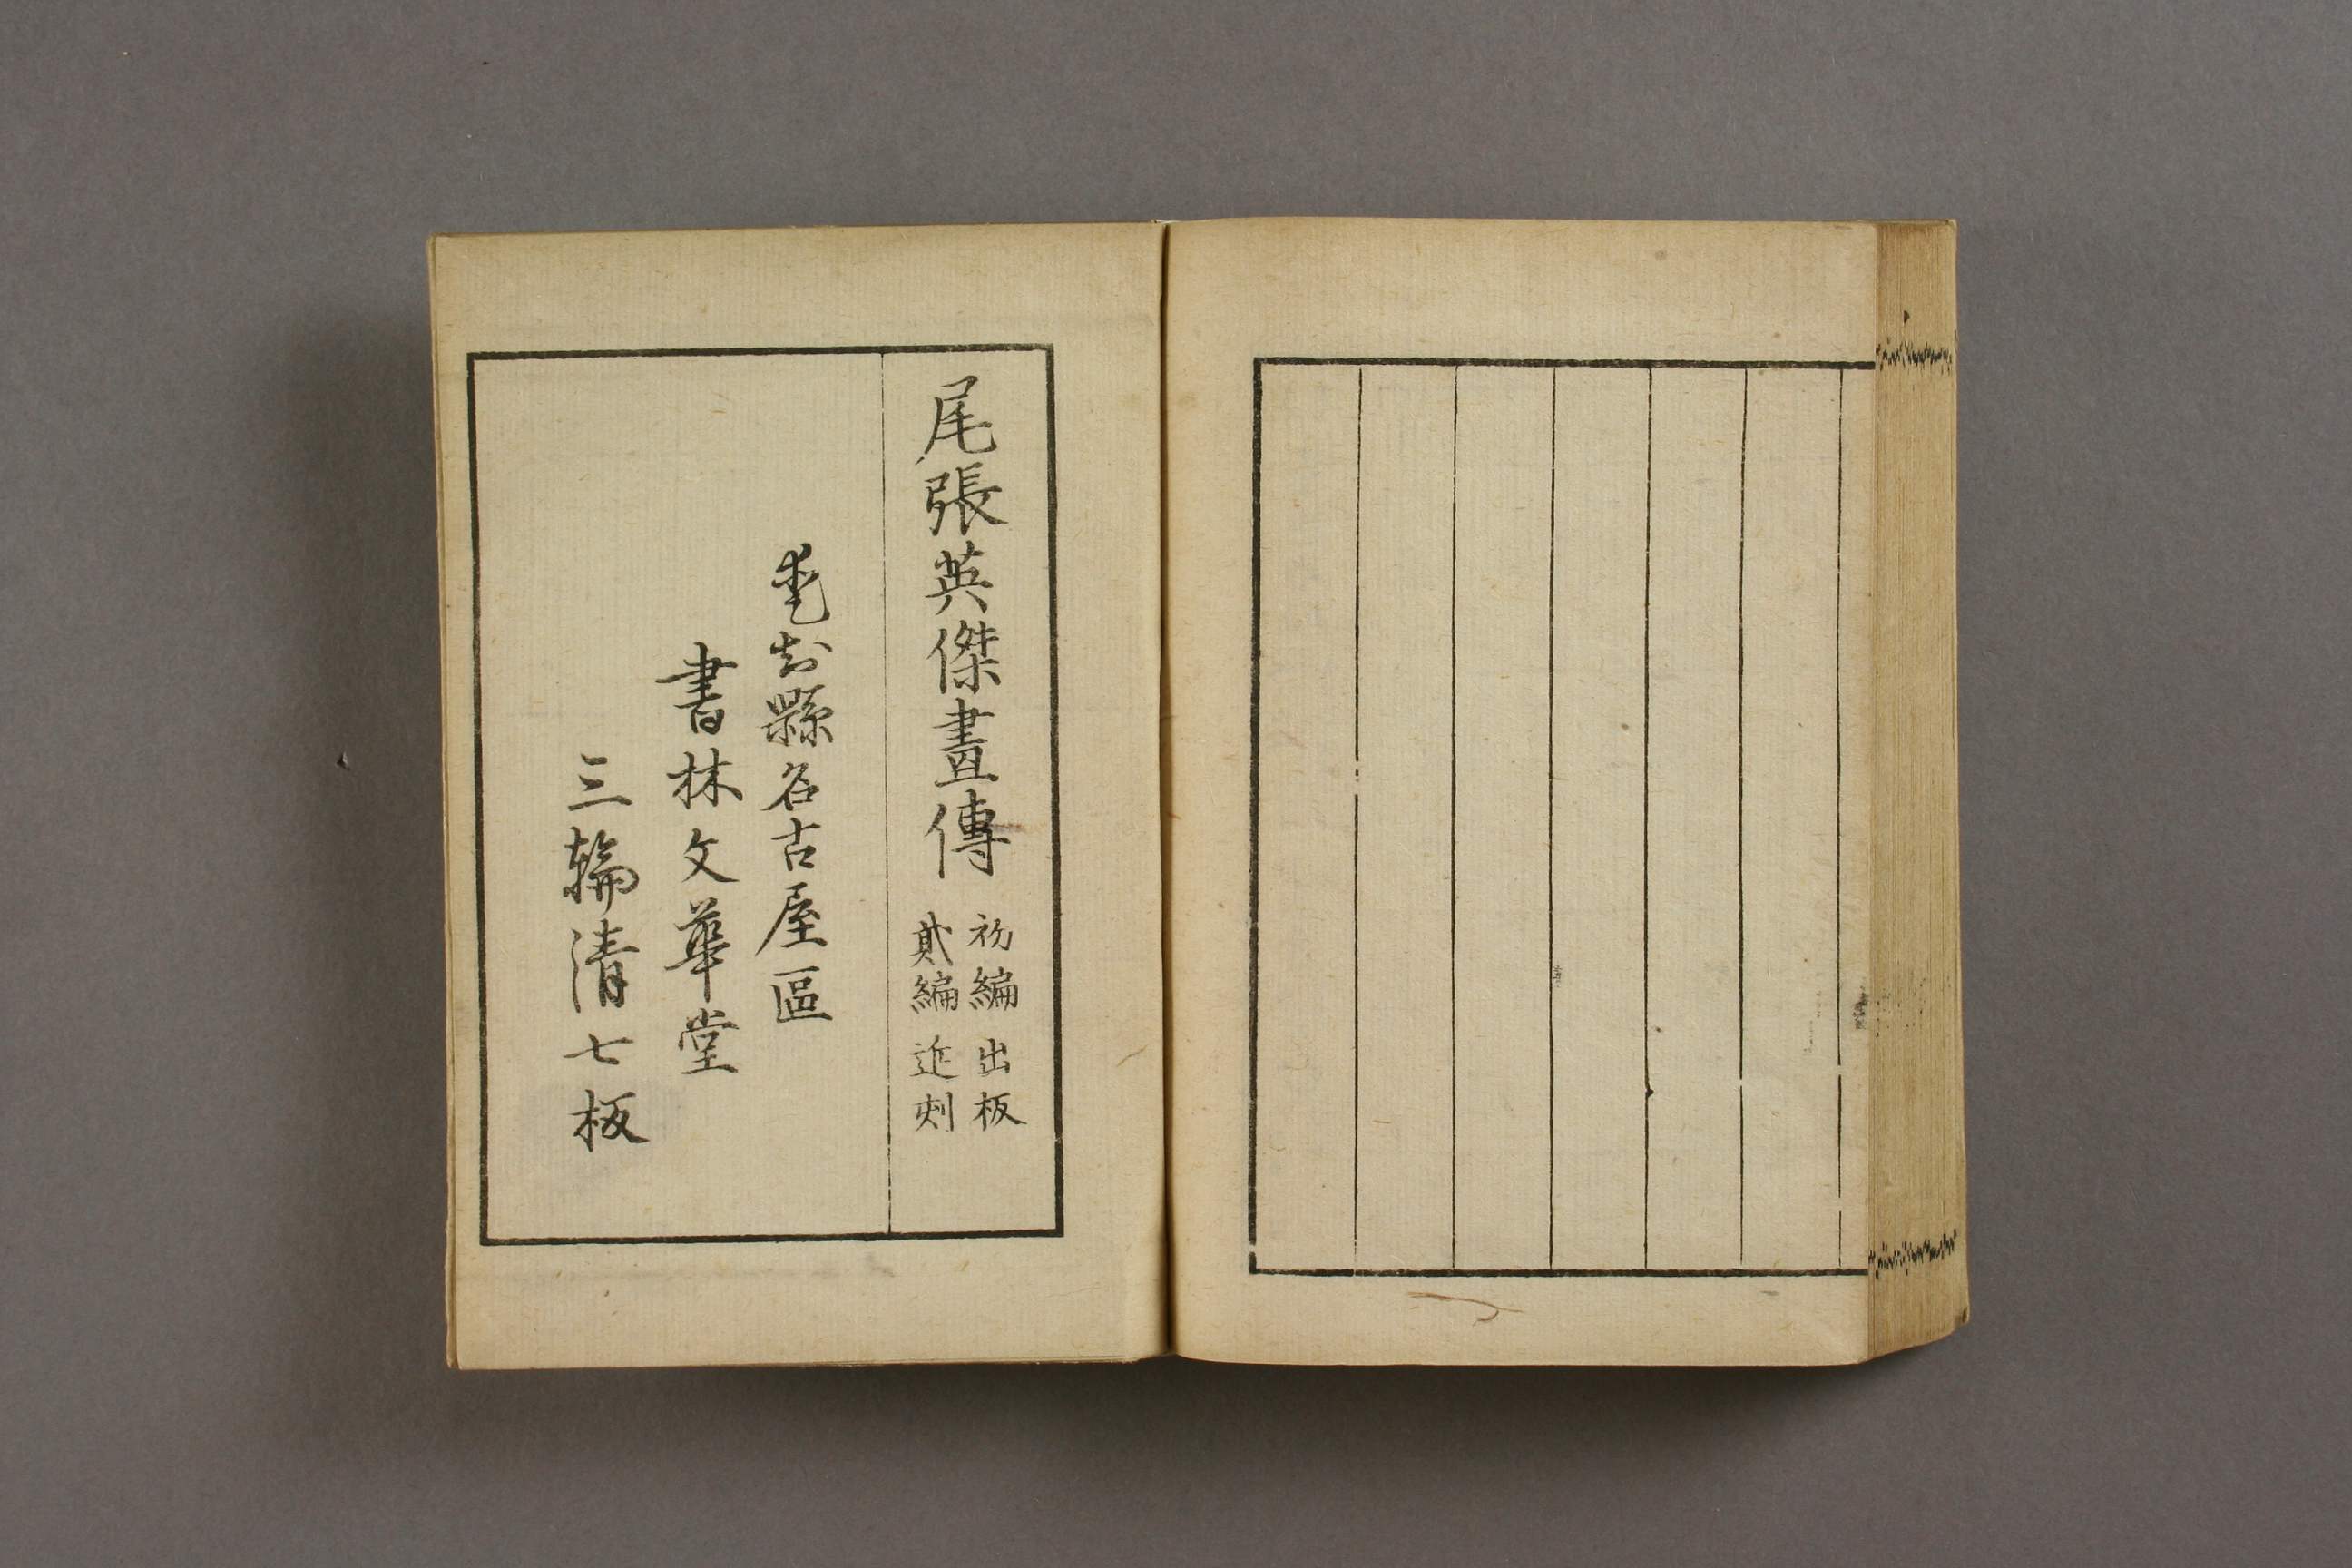 尾張英傑畫傳
初編 出板
貳編 近刻
愛知縣名古屋區
書林文華堂
三輪清七板